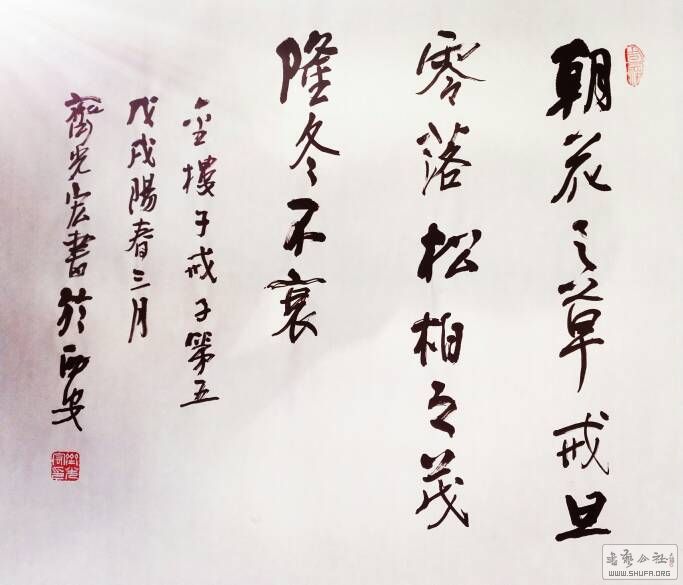 朝花之草戒旦
零落松柏之茂
隆冬不衰
金樓子戒子第五
戊戌陽春三月
齊光宏書於西安
書藝公社
WWW.SHUFA.ORG